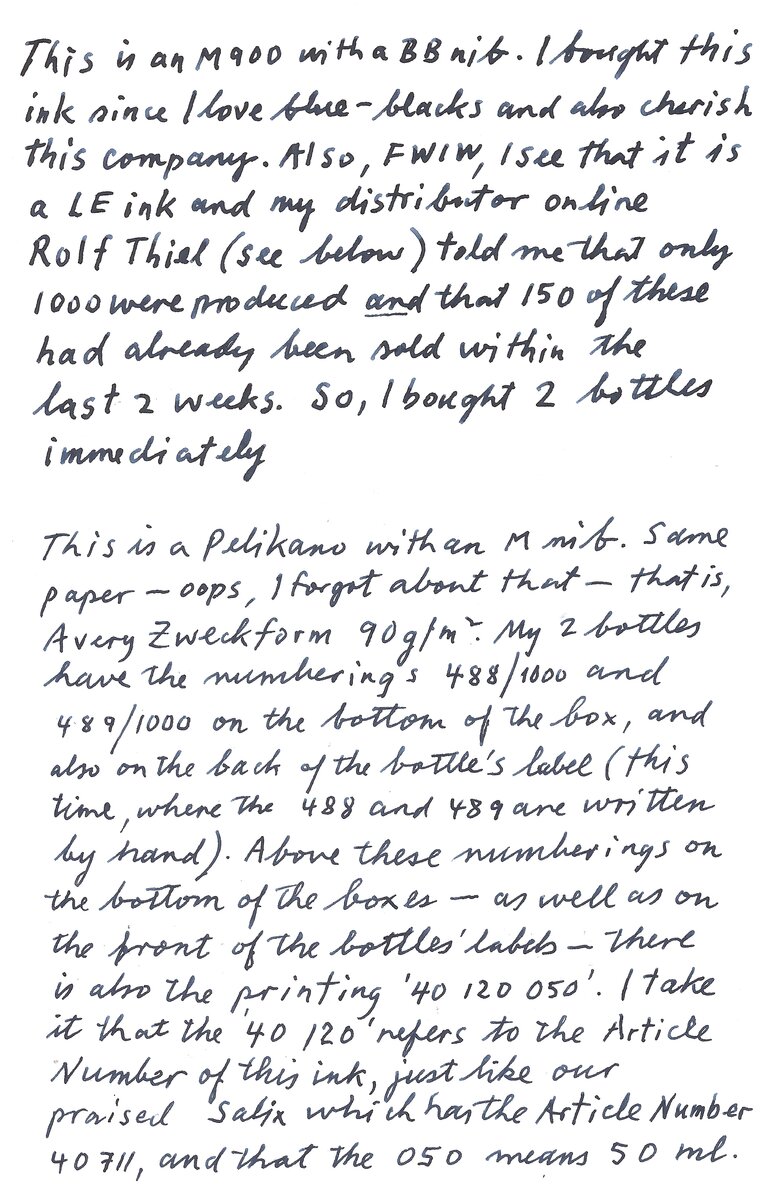 This is an M900 with a BB nib. I bought this
ink since I love blue-blacks and also cherish
this company. Also, FWIW, I see that it is
a LE ink and my distributor online
Rolf Thiel (see below) told me that only
1000 were produced and that 150 of these
had already been sold within the
last 2 weeks. So, I bought 2 bottles
immediately
This is a Pelikano with an M nib. Same
paper – oops, I forgot about that – that is,
Avery Zweckform 90g/m². My 2 bottles
have the numberings 488/1000 and
489/1000 on the bottom of the box, and
also on the back of the bottle's label (this
time, where the 488 and 489 are written
by hand). Above these numberings on
the bottom of the boxes – as well as on
the front of the bottles' labels – there
is also the printing '40 120 050'. I take
it that the '40 120' refers to the Article
Number of this ink, just like our
praised Salix which has the Article Number
40711, and that the 050 means 50 ml.